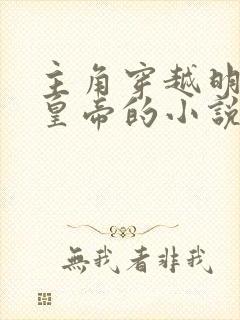 主角穿越明
皇帝的小說
無我者非我